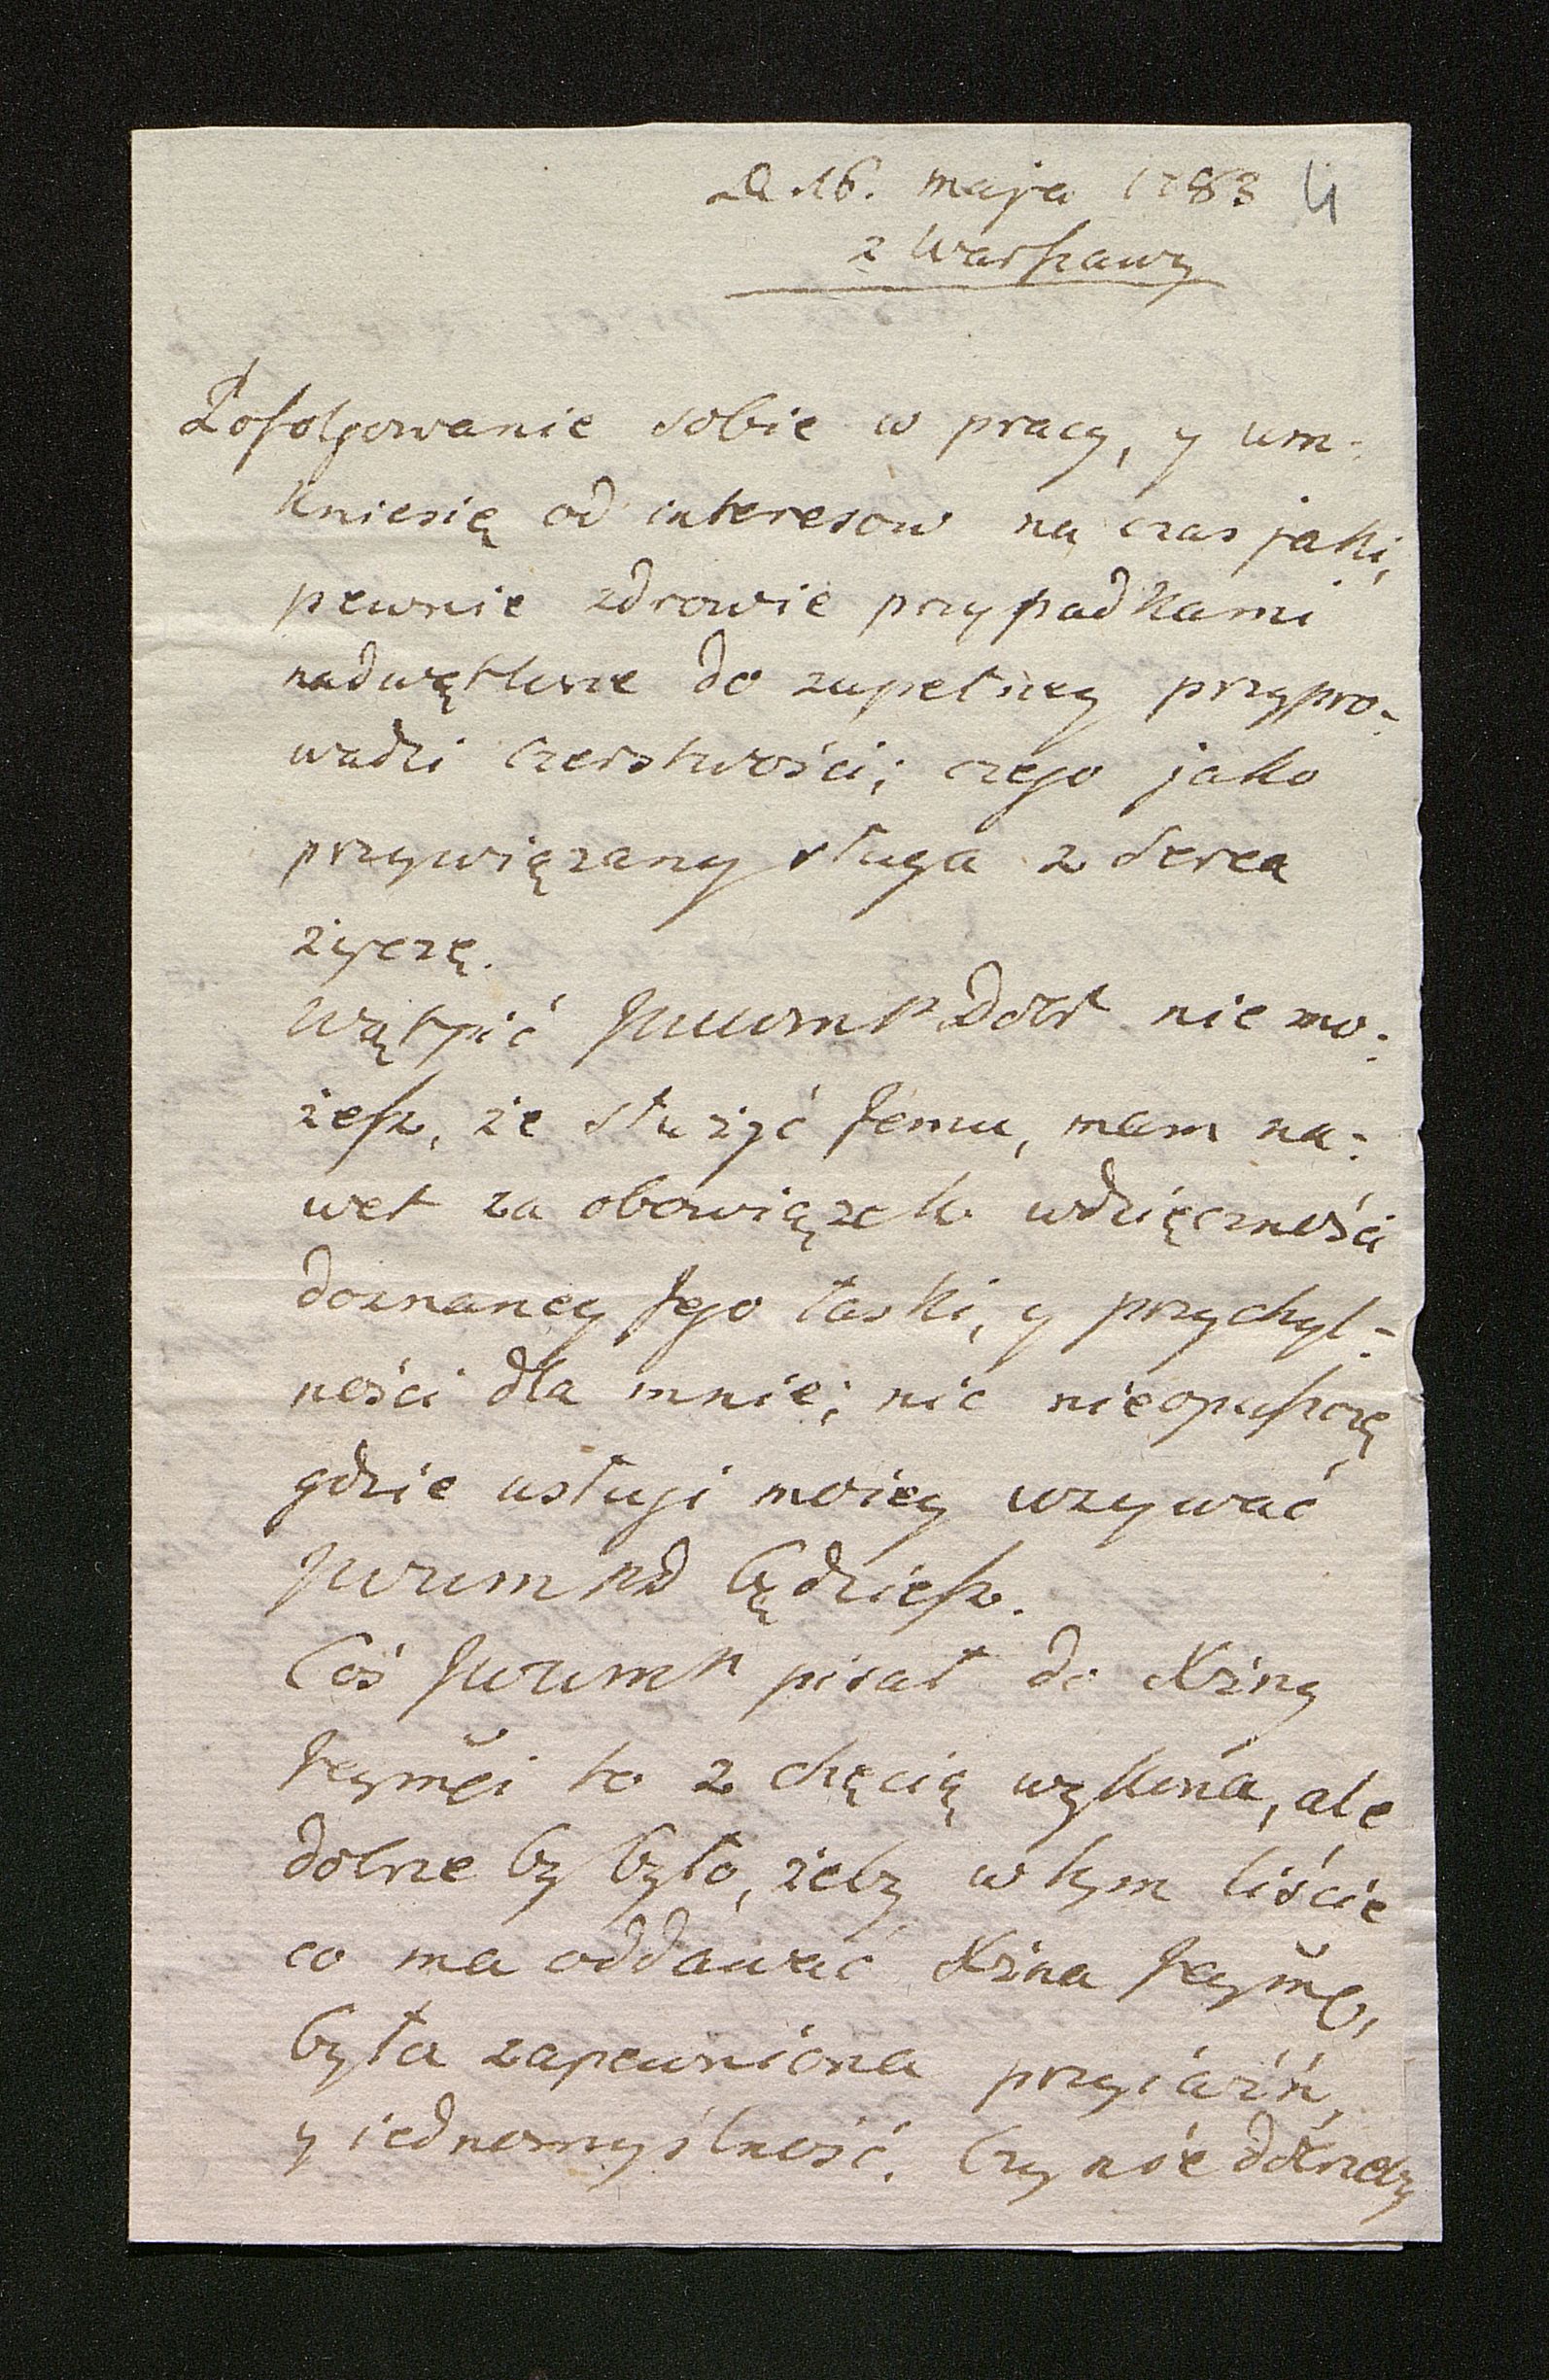 D 16. maja 1783 4
z Warszawy
Pofolgowanie sobie w pracy, y um-
kniesię od interesow na czas jaki,
pewnie zdrowie przypadkami
nadwątlone do zupełney przypro-
wadzi Czerstwości; czego jako
przywiązany sługa z serca
życzę.
Wątpić nie mo-
żesz, że służyć Jemu, mam na-
wet za obowiązek wdzięczności
doznaney Jego łaski, y przychyl-
ności dla mnie; nic nieopuszczę
gdzie usługi moiey uzywać
JWWM PD będziesz.
Coś JWWM P pisał do Xżny
Jeymći to z chęcią wykona, ale
dobrze by było, żeby w tym liście
co ma oddawać Xżna Jeymć,
była zapewniona przyiaźń,
y iednomyślność. Czy nie dobrzeby